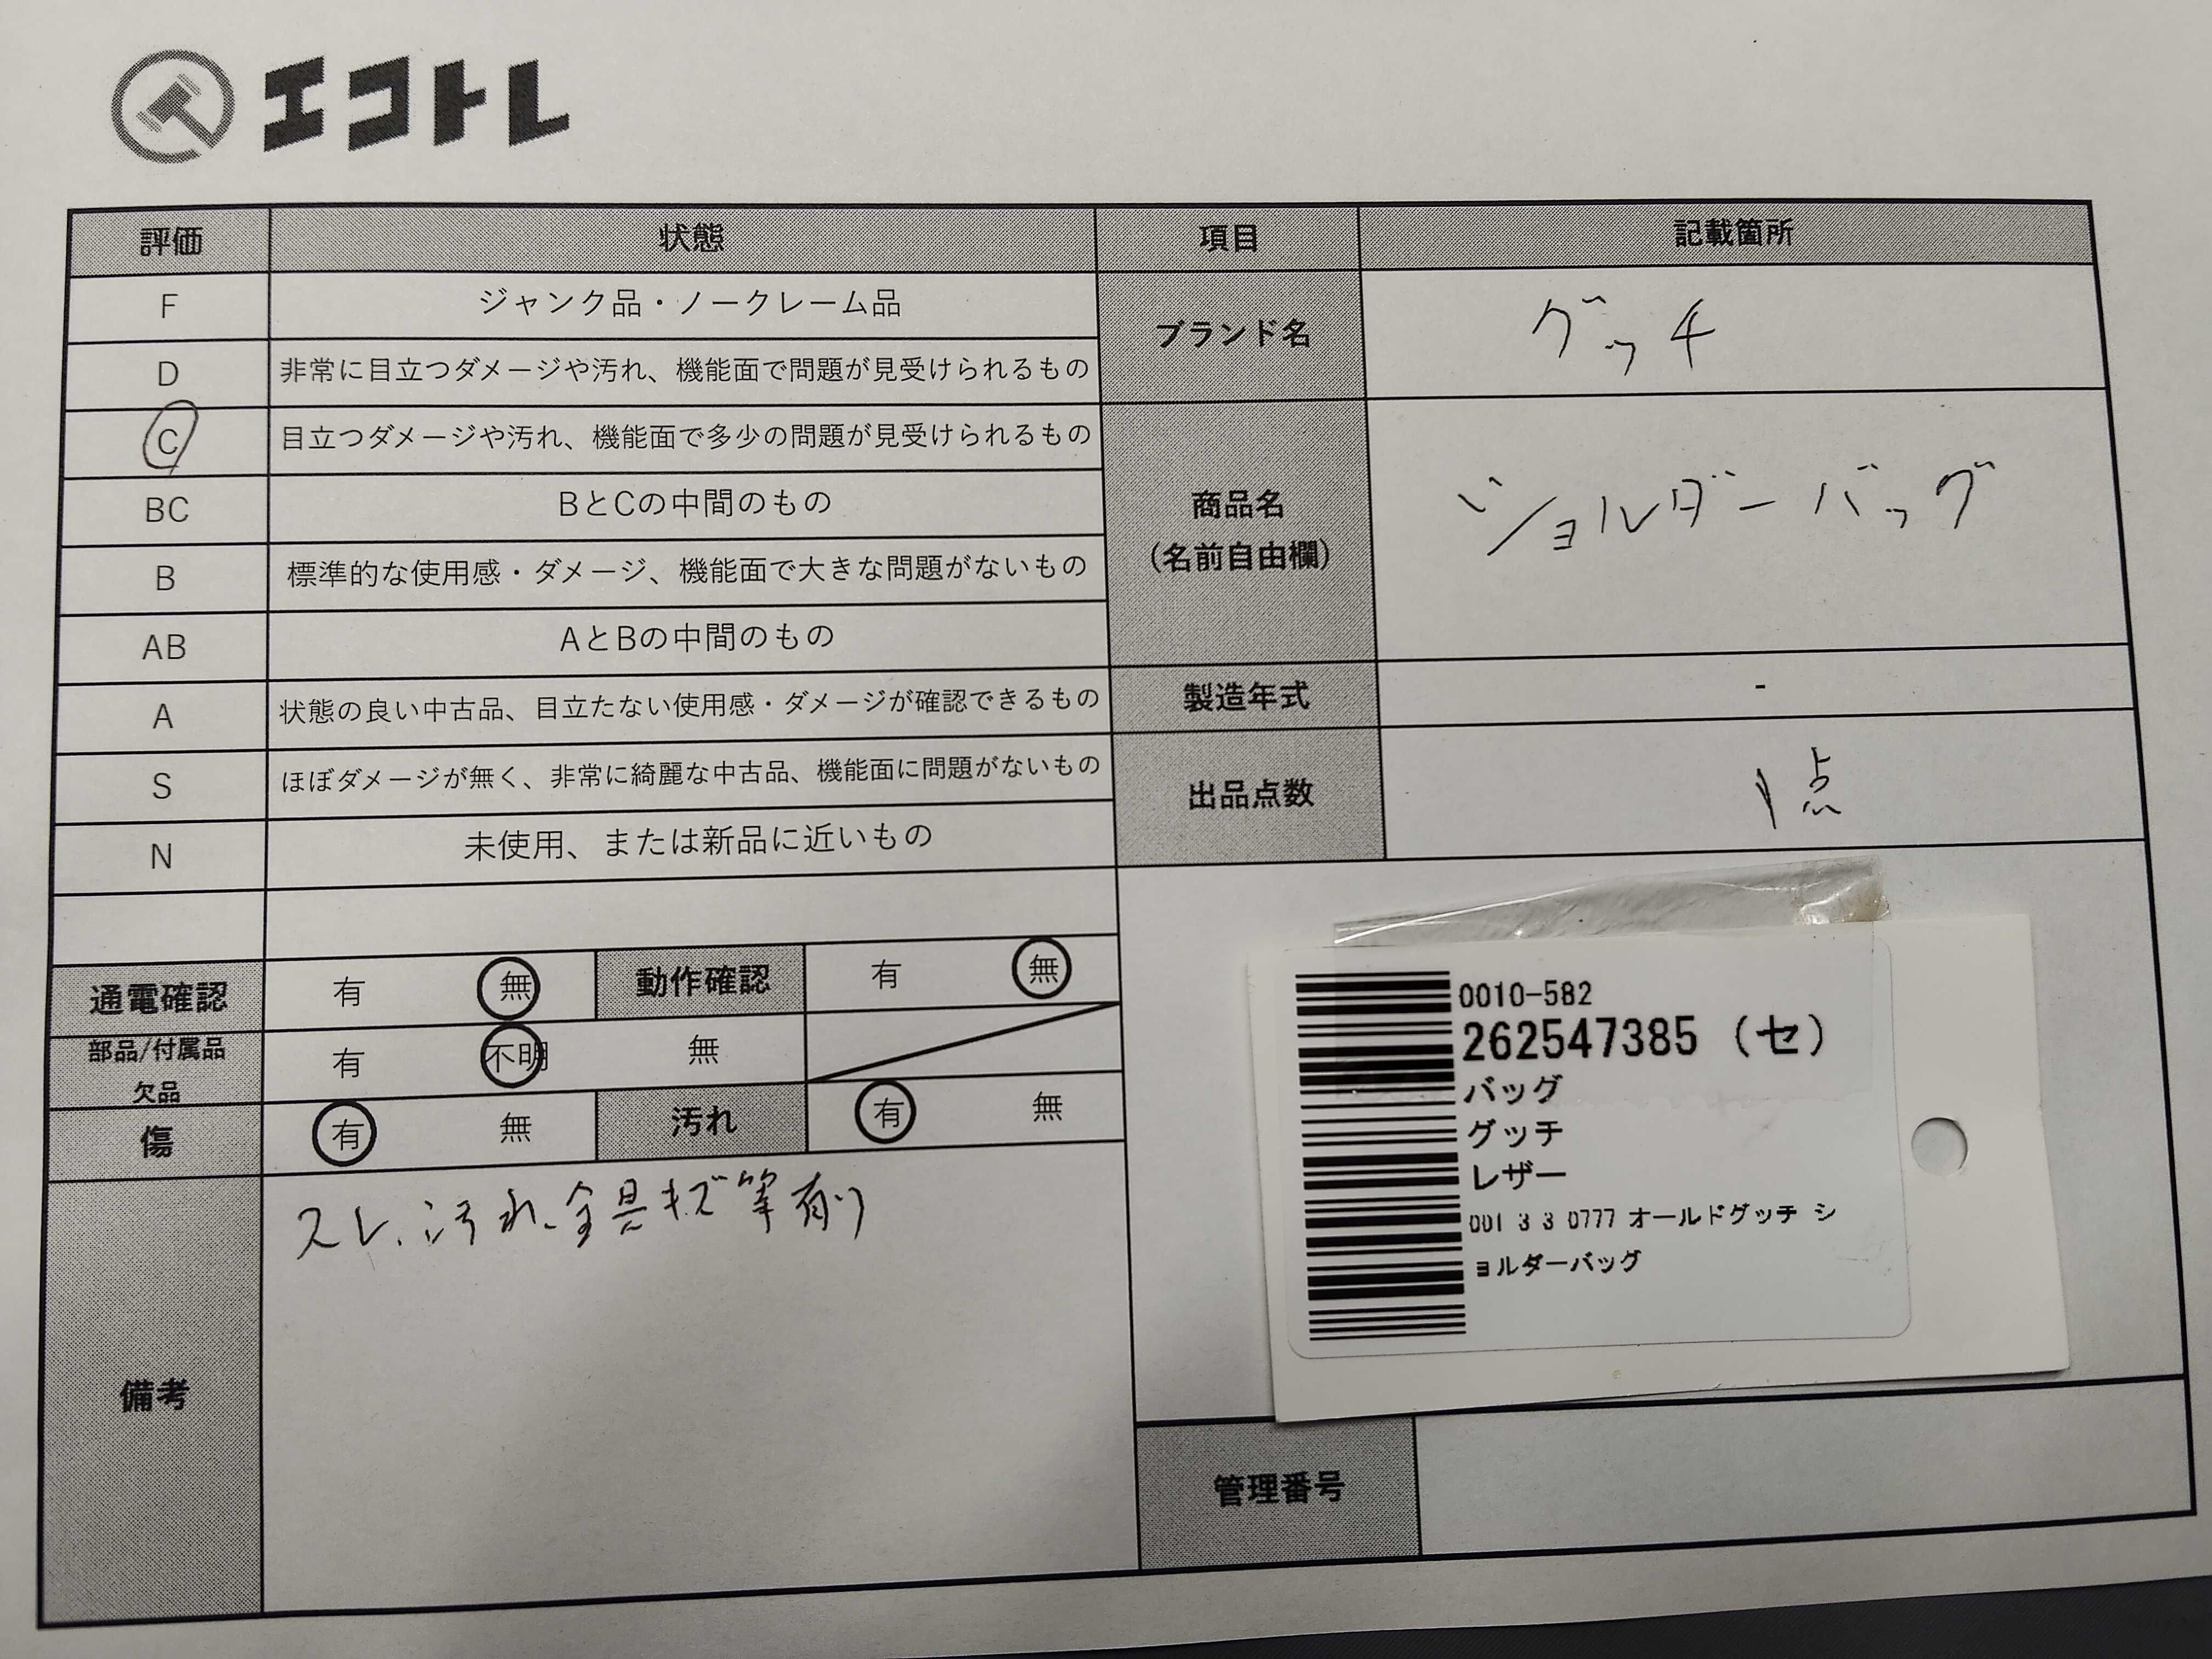 エコトレ
評価 状態 項目 記載箇所
F ジャンク品・ノークレーム品
D 非常に目立つダメージや汚れ、機能面で問題が見受けられるもの
C 目立つダメージや汚れ、機能面で多少の問題が見受けられるもの
BC BとCの中間のもの
B 標準的な使用感・ダメージ、機能面で大きな問題がないもの
AB AとBの中間のもの
A 状態の良い中古品、目立たない使用感・ダメージが確認できるもの
S ほぼダメージが無く、非常に綺麗な中古品、機能面に問題がないもの
N 未使用、または新品に近いもの
ブランド名 グッチ
商品名
(名前自由欄)
ショルダーバッグ
製造年式 -
出品点数 1点
通電確認 有 無 動作確認 有 無
部品/付属品
欠品
有 不明 無
傷 有 無 汚れ 有 無
備考
スレ、汚れ、金具キズ等有り
0010-582
262547385 (セ)
バッグ
グッチ
レザー
001 3 3 0777 オールドグッチ シ
ョルダーバッグ
管理番号